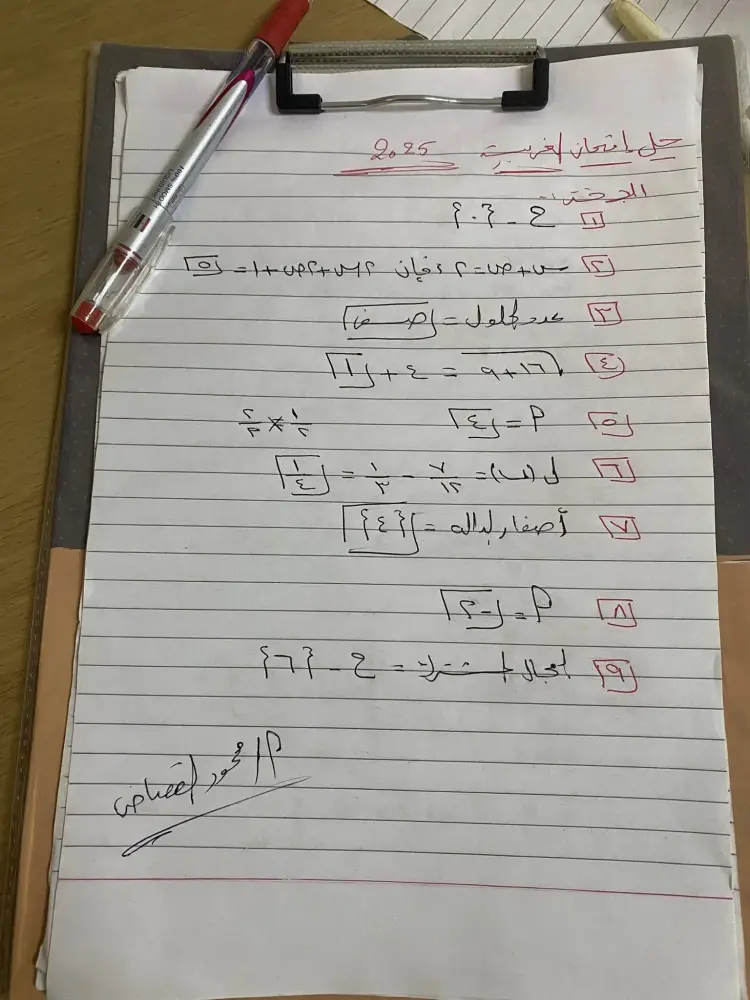 حل امتحان الغربية 2025
الجبر
١ ح - {٠}
٢ س + ص = ٢ ، فإن ٢س + ٢ص + ١ = ٥
٣ عدد الحلول = صفر
٤ ١٦ + ٩ = ٤ + ١
٥ م = ٤ ١/٢ × ٢/٢
٦ ل (ب) = ٧/١٢ - ١/٣ = ١/٤
٧ أصفار الدالة = {٤}
٨ م = -٢
٩ المجال المشترك = ح - {٦}
م/ محمود